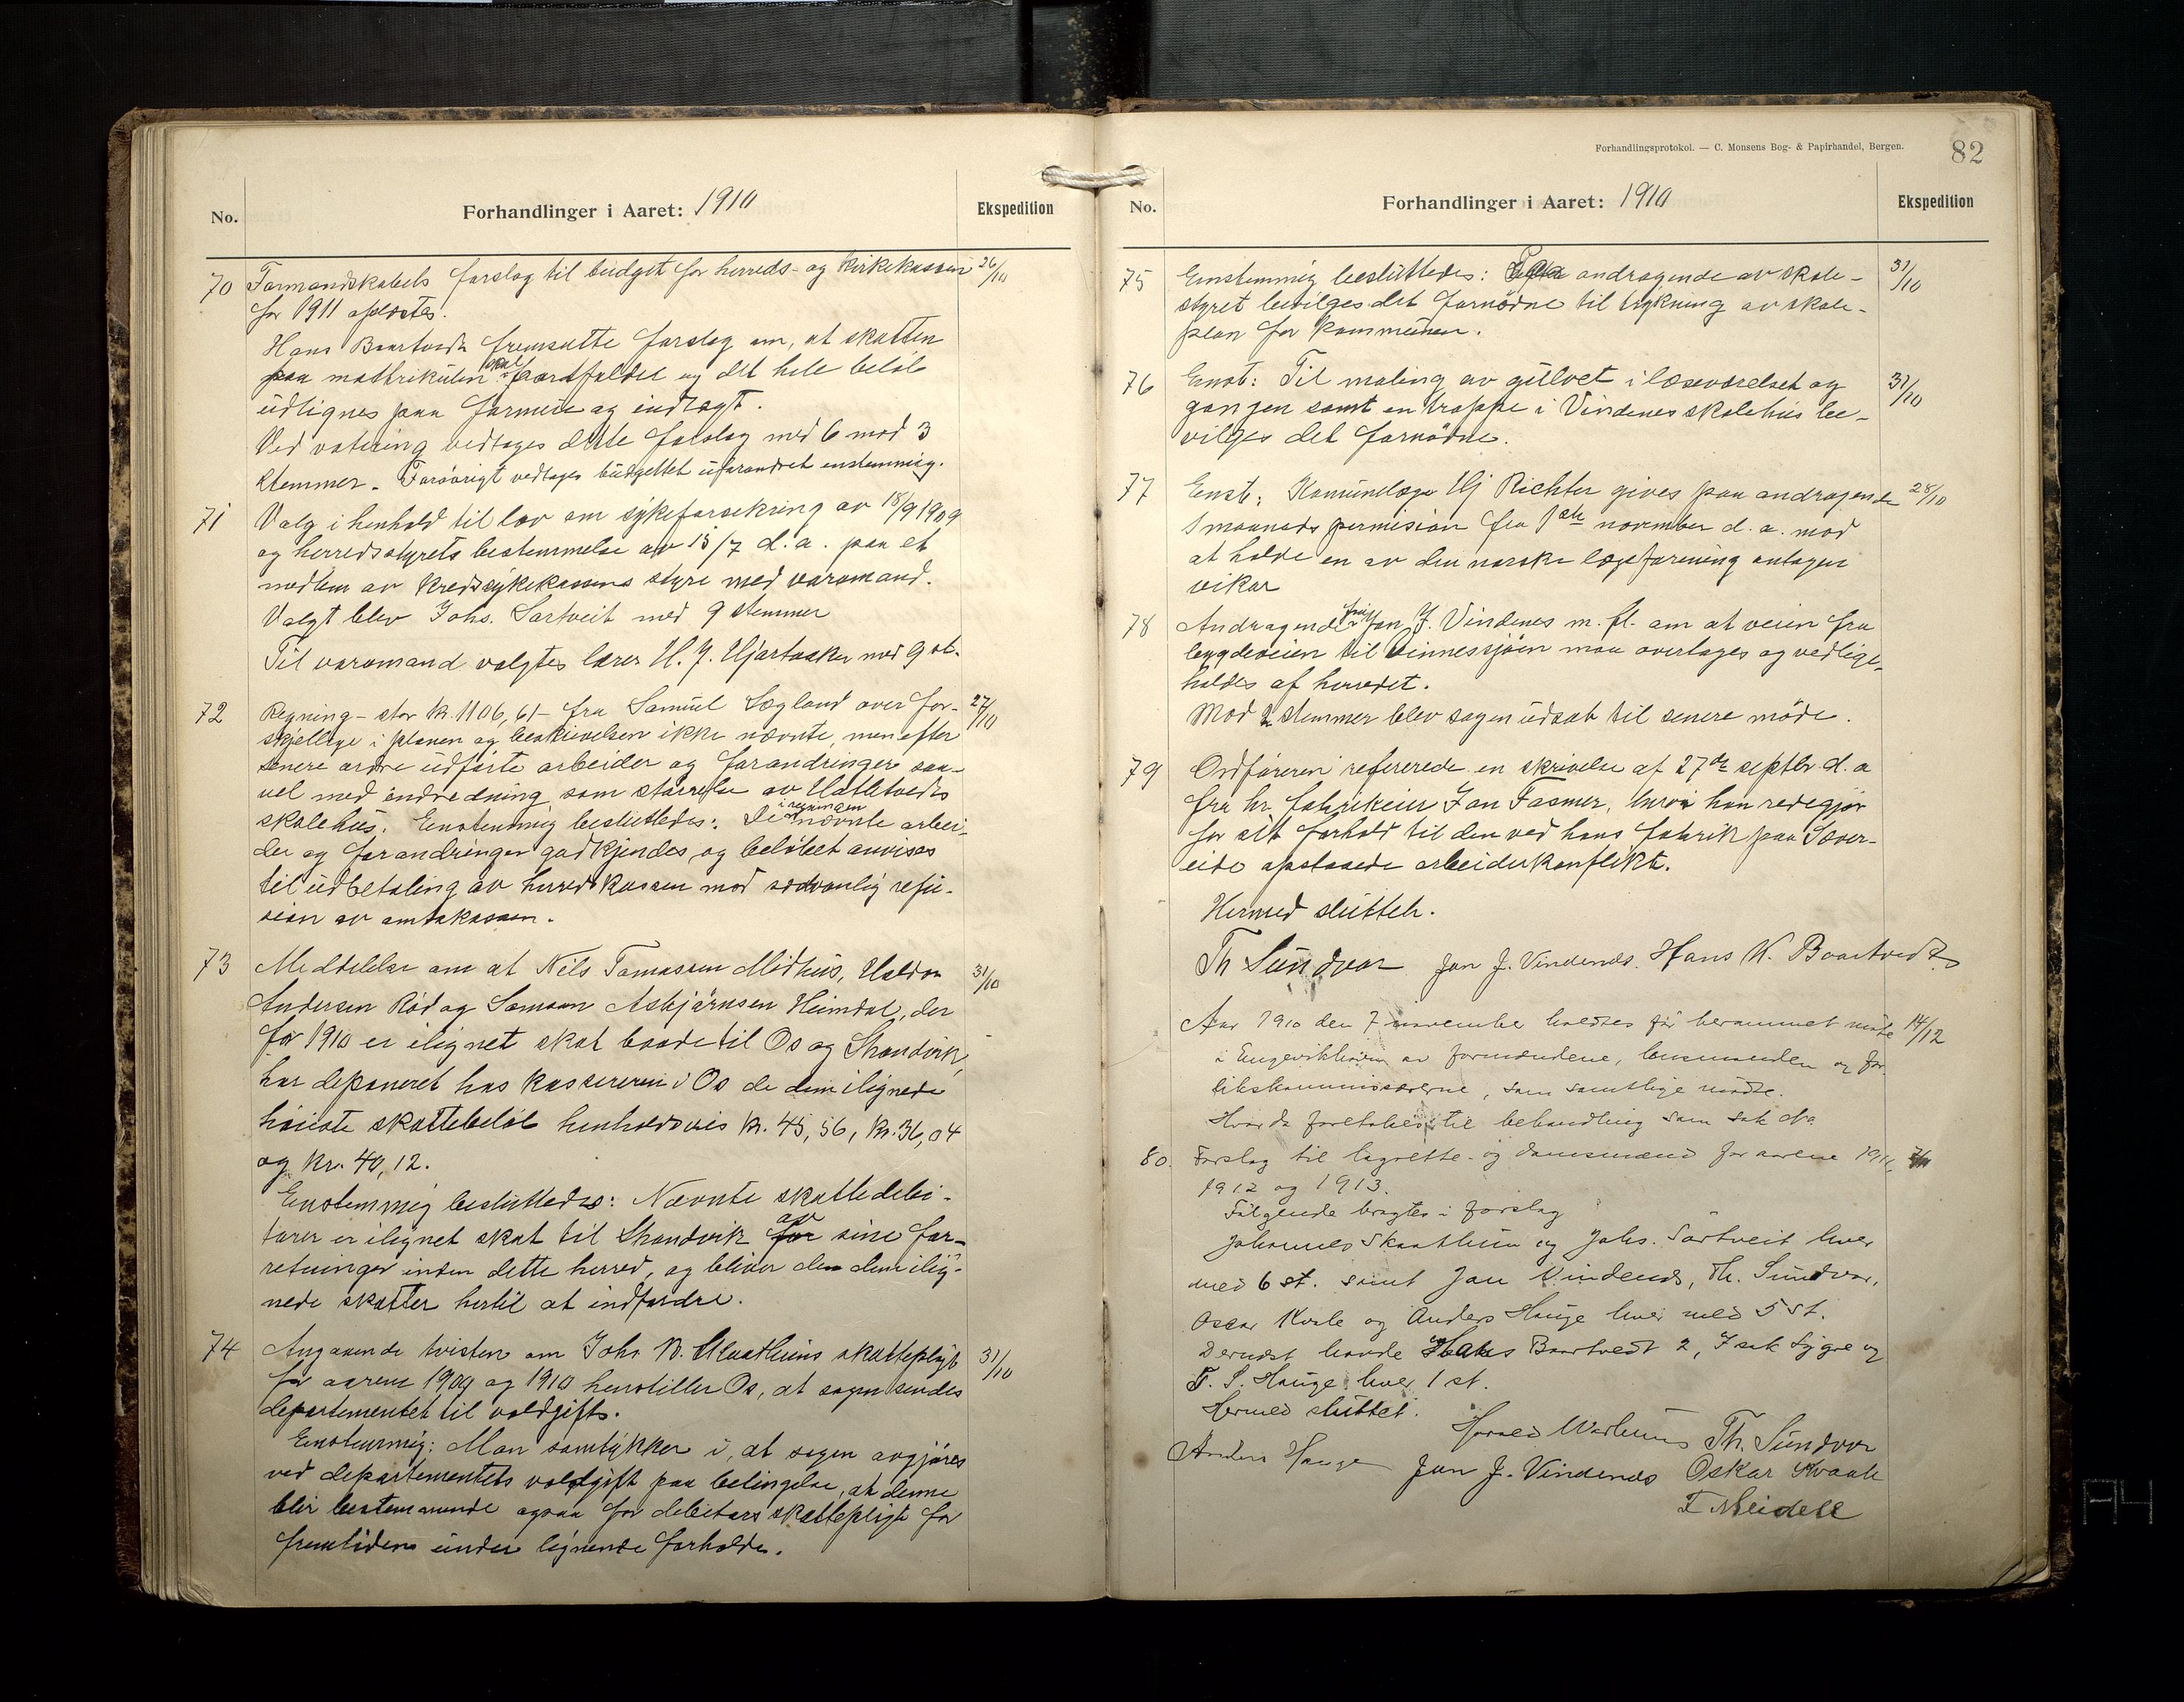 Forhandlinger i Aaret: 1910
No.
Ekspedition
70 Formandskabets forslag til budget for herreds- og kirkekassen 26/10
for 1911 oplæstes.
Hans Baartvedt fremsatte forslag om, at skatten
paa mathrikulen skal bortfaldet og det hele beløb
udlignes paa formue og indtægt.
Ved votering vedtages dette forslag med 6 mod 3
stemmer. Forøvrigt vedtages budgettet uforandret enstemmig.
71 Valg i henhold til lov om sykeforsekring av 18/9 1909
og herredsstyrets bestemmelse av 15/7 d.a. paa et
medlem av kredssykekassens styre med varamand.
Valgt blev Johs. Sørtveit med 9 stemmer
Til varamand valgtes lærer H. J. Hjartaaker med 9 st.
72 Regning - stor kr. 1106,61 - fra Samuel Søgland over for- 27/10
skjellige i planen og beskrivelsen ikke nævnte, men efter
senere ordre udførte arbeider og forandringer saa-
vel med indredning som størrelse av Hatletvedts
skolehus. Enstemmig besluttedes: De i regningen nævnte arbei-
der og forandringer godkjendes og beløbet anvises
til udbetaling av herredskassen mod sedvanlig refu-
sion av amtskassen.
73 Meddelelse om at Nils Tomassen Midhus, Haldor 31/10
Andersen Rød og Samson Asbjørnsen Heimdal, der
for 1910 er ilignet skat baade til Os og Strandvik,
har deponeret hos kassereren i Os de dem ilignede
høieste skattebeløb henholdsvis kr. 45,56, kr. 36,04
og kr. 40,12.
Enstemmig besluttedes: Nævnte skattedebi-
torer er ilignet skat til Strandvik for av sine for-
retninger inden dette herred, og bliver den dem ilig-
nede skatter hertil at indfordre.
74 Angaaende tvisten om Johs K. Skaathuns skattepligt 31/10
for aarene 1909 og 1910 henstiller Os, at sagen sendes
departementet til voldgift.
Enstemmig: Man samtykker i, at sagen avgjøres
ved departementets voldgift paa betingelse, at denne
blir bestemmende ogsaa for debitors skattepligt for
fremtiden under lignende forholde.
Forhandlingsprotokol. — C. Monsens Bog- & Papirhandel, Bergen.
82
No.
Forhandlinger i Aaret: 1910
Ekspedition
75 Enstemmig besluttedes: andragende av skole- 31/10
styret bevilges det fornødne til trykning av skole-
plan for kommunen.
76 Enst: Til maling av gulvet i læseværelset og 31/10
gangen samt en trappe i Vindenes skolehus be-
vilges det fornødne.
77 Enst: Komunelæge Hj Richter gives paa andragende 28/10
1 maaneds permision fra 1ste november d.a. mod
at holde en av den norske lægeforening antagen
vikar
78 Andragende fra Jan J. Vindenes m. fl. om at veien fra
bygdeveien til Vinnessjøen maa overtages og vedlige-
holdes af herredet.
Mod 2 stemmer blev sagen udsat til senere møde.
79 Ordføreren refererede en skrivelse af 27de septbr. d.a
fra hr. fabrikeier Jan Fasmer, hvori han redegjør
for sit forhold til den ved hans fabrik paa Sæver-
eide opstaaede arbeiderkonflikt.
Hermed sluttet.
Th Sundvor Jan J. Vindenes. Hans K. Baartvedt
Aar 1910 den 7 november holdtes før berammet møte 14/12
i Engevikhavn av formændene, lensmanden og for-
likskommissærerne, som samtlige mødte.
Hvorda foretokes til behandling som sak No
80. Forslag til lagrette- og domsmænd for aarene 1911,
1912 og 1913.
Følgende bragtes i forslag
Johannes Skaathun og Johs. Sørtveit hver
med 6 st. samt Jan Vindenes, Th. Sundvor,
Oscar Kvale og Anders Hauge hver med 5 st.
Dernæst havde Hans Baartvedt 2, Isak Lygre og
T. S. Hauge hver 1 st.
Hermed sluttet.
Th. Sundvor
Anders Hauge Jan J. Vindenes Oskar Kvaale
F Meidell